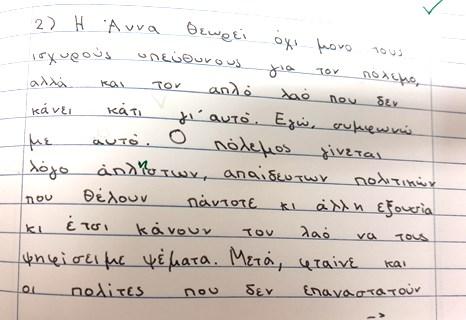 2) Η Άννα θεωρεί όχι μονο τους
ισχυρούς υπεύθυνους για τον πόλεμο,
αλλά και τον απλό λαό που δεν
κάνει κάτι γι' αυτό. Εγώ, συμφωνώ
με αυτό. Ο πόλεμος γίνεται
λόγο άπληστων, απαίδευτων πολιτικών
που θέλουν πάντοτε κι άλλη εξουσία
κι έτσι κάνουν τον λαό να τους
ψηφίσει με ψέματα. Μετά, φταίνε και
οι πολίτες που δεν επαναστατούν
→